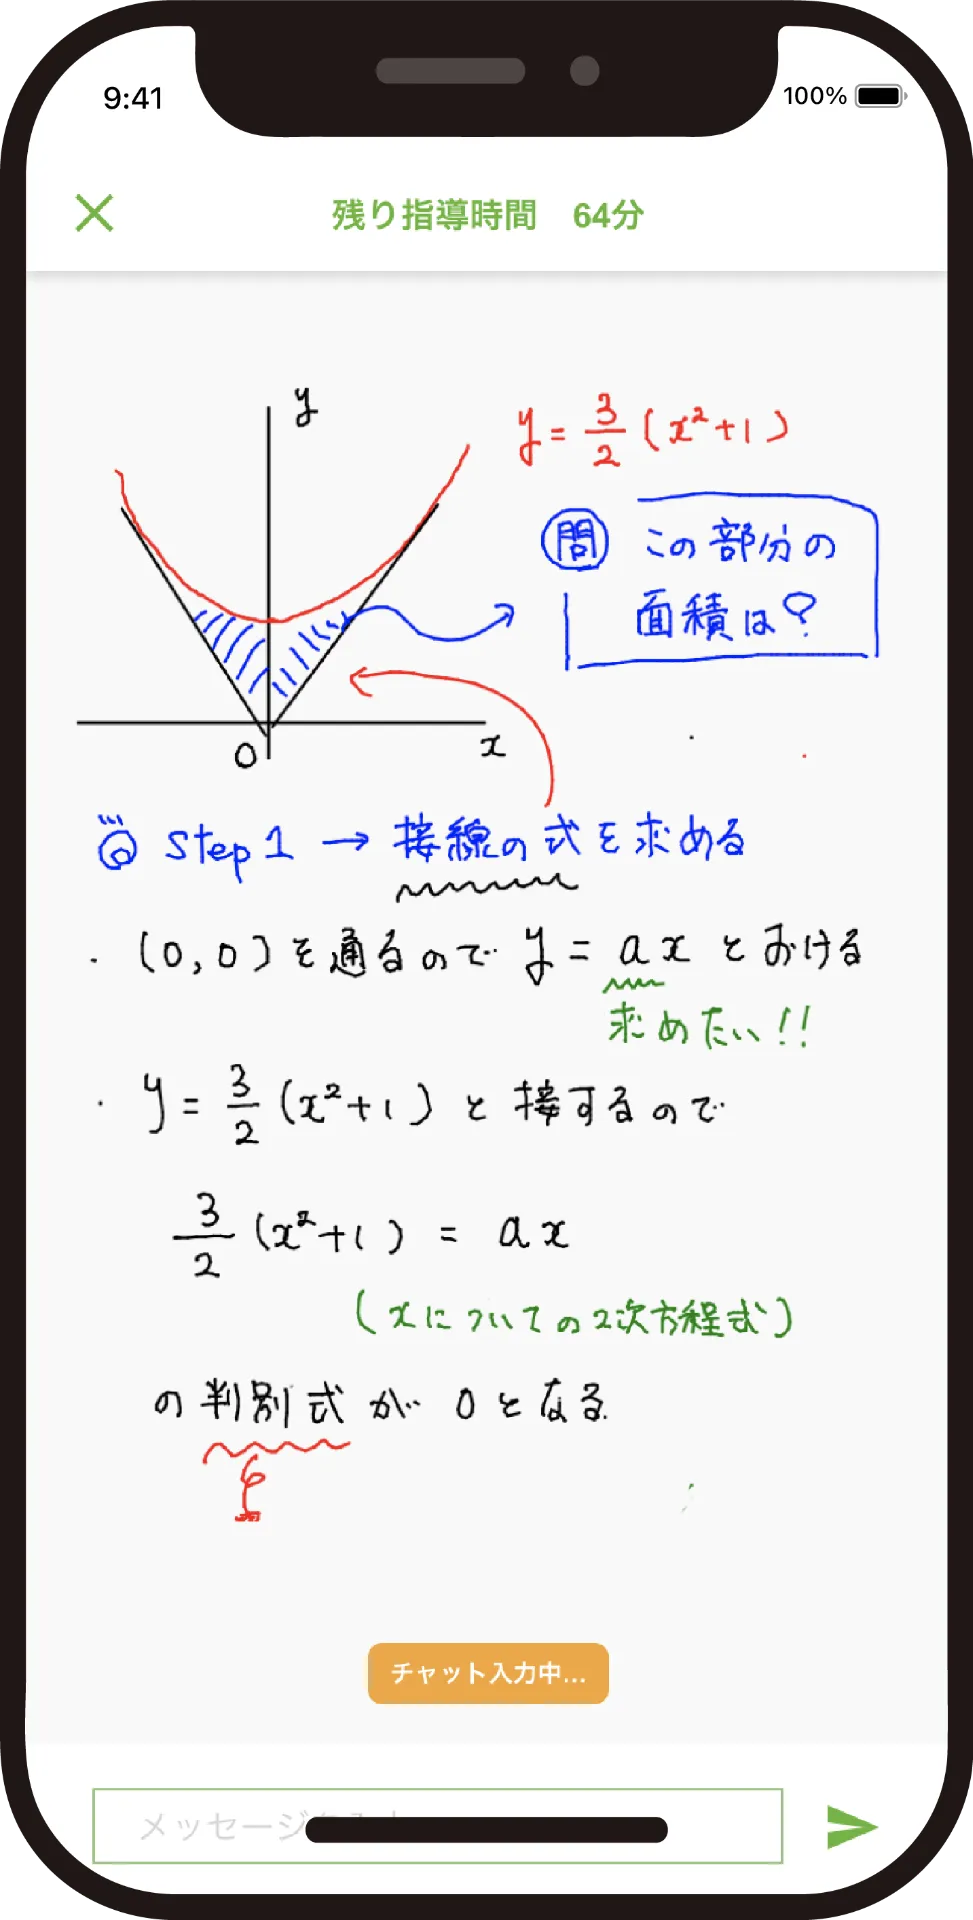 9:41
100%
残り指導時間 64分
y
y = 3/2 (x²+1)
問 この部分の
面積は?
O
x
Step 1 → 接線の式を求める
・ (0,0)を通るので y = ax とおける
求めたい!!
・ y = 3/2 (x²+1) と接するので
3/2 (x²+1) = ax
(xについての2次方程式)
の判別式が 0となる
チャット入力中...
メッセージ